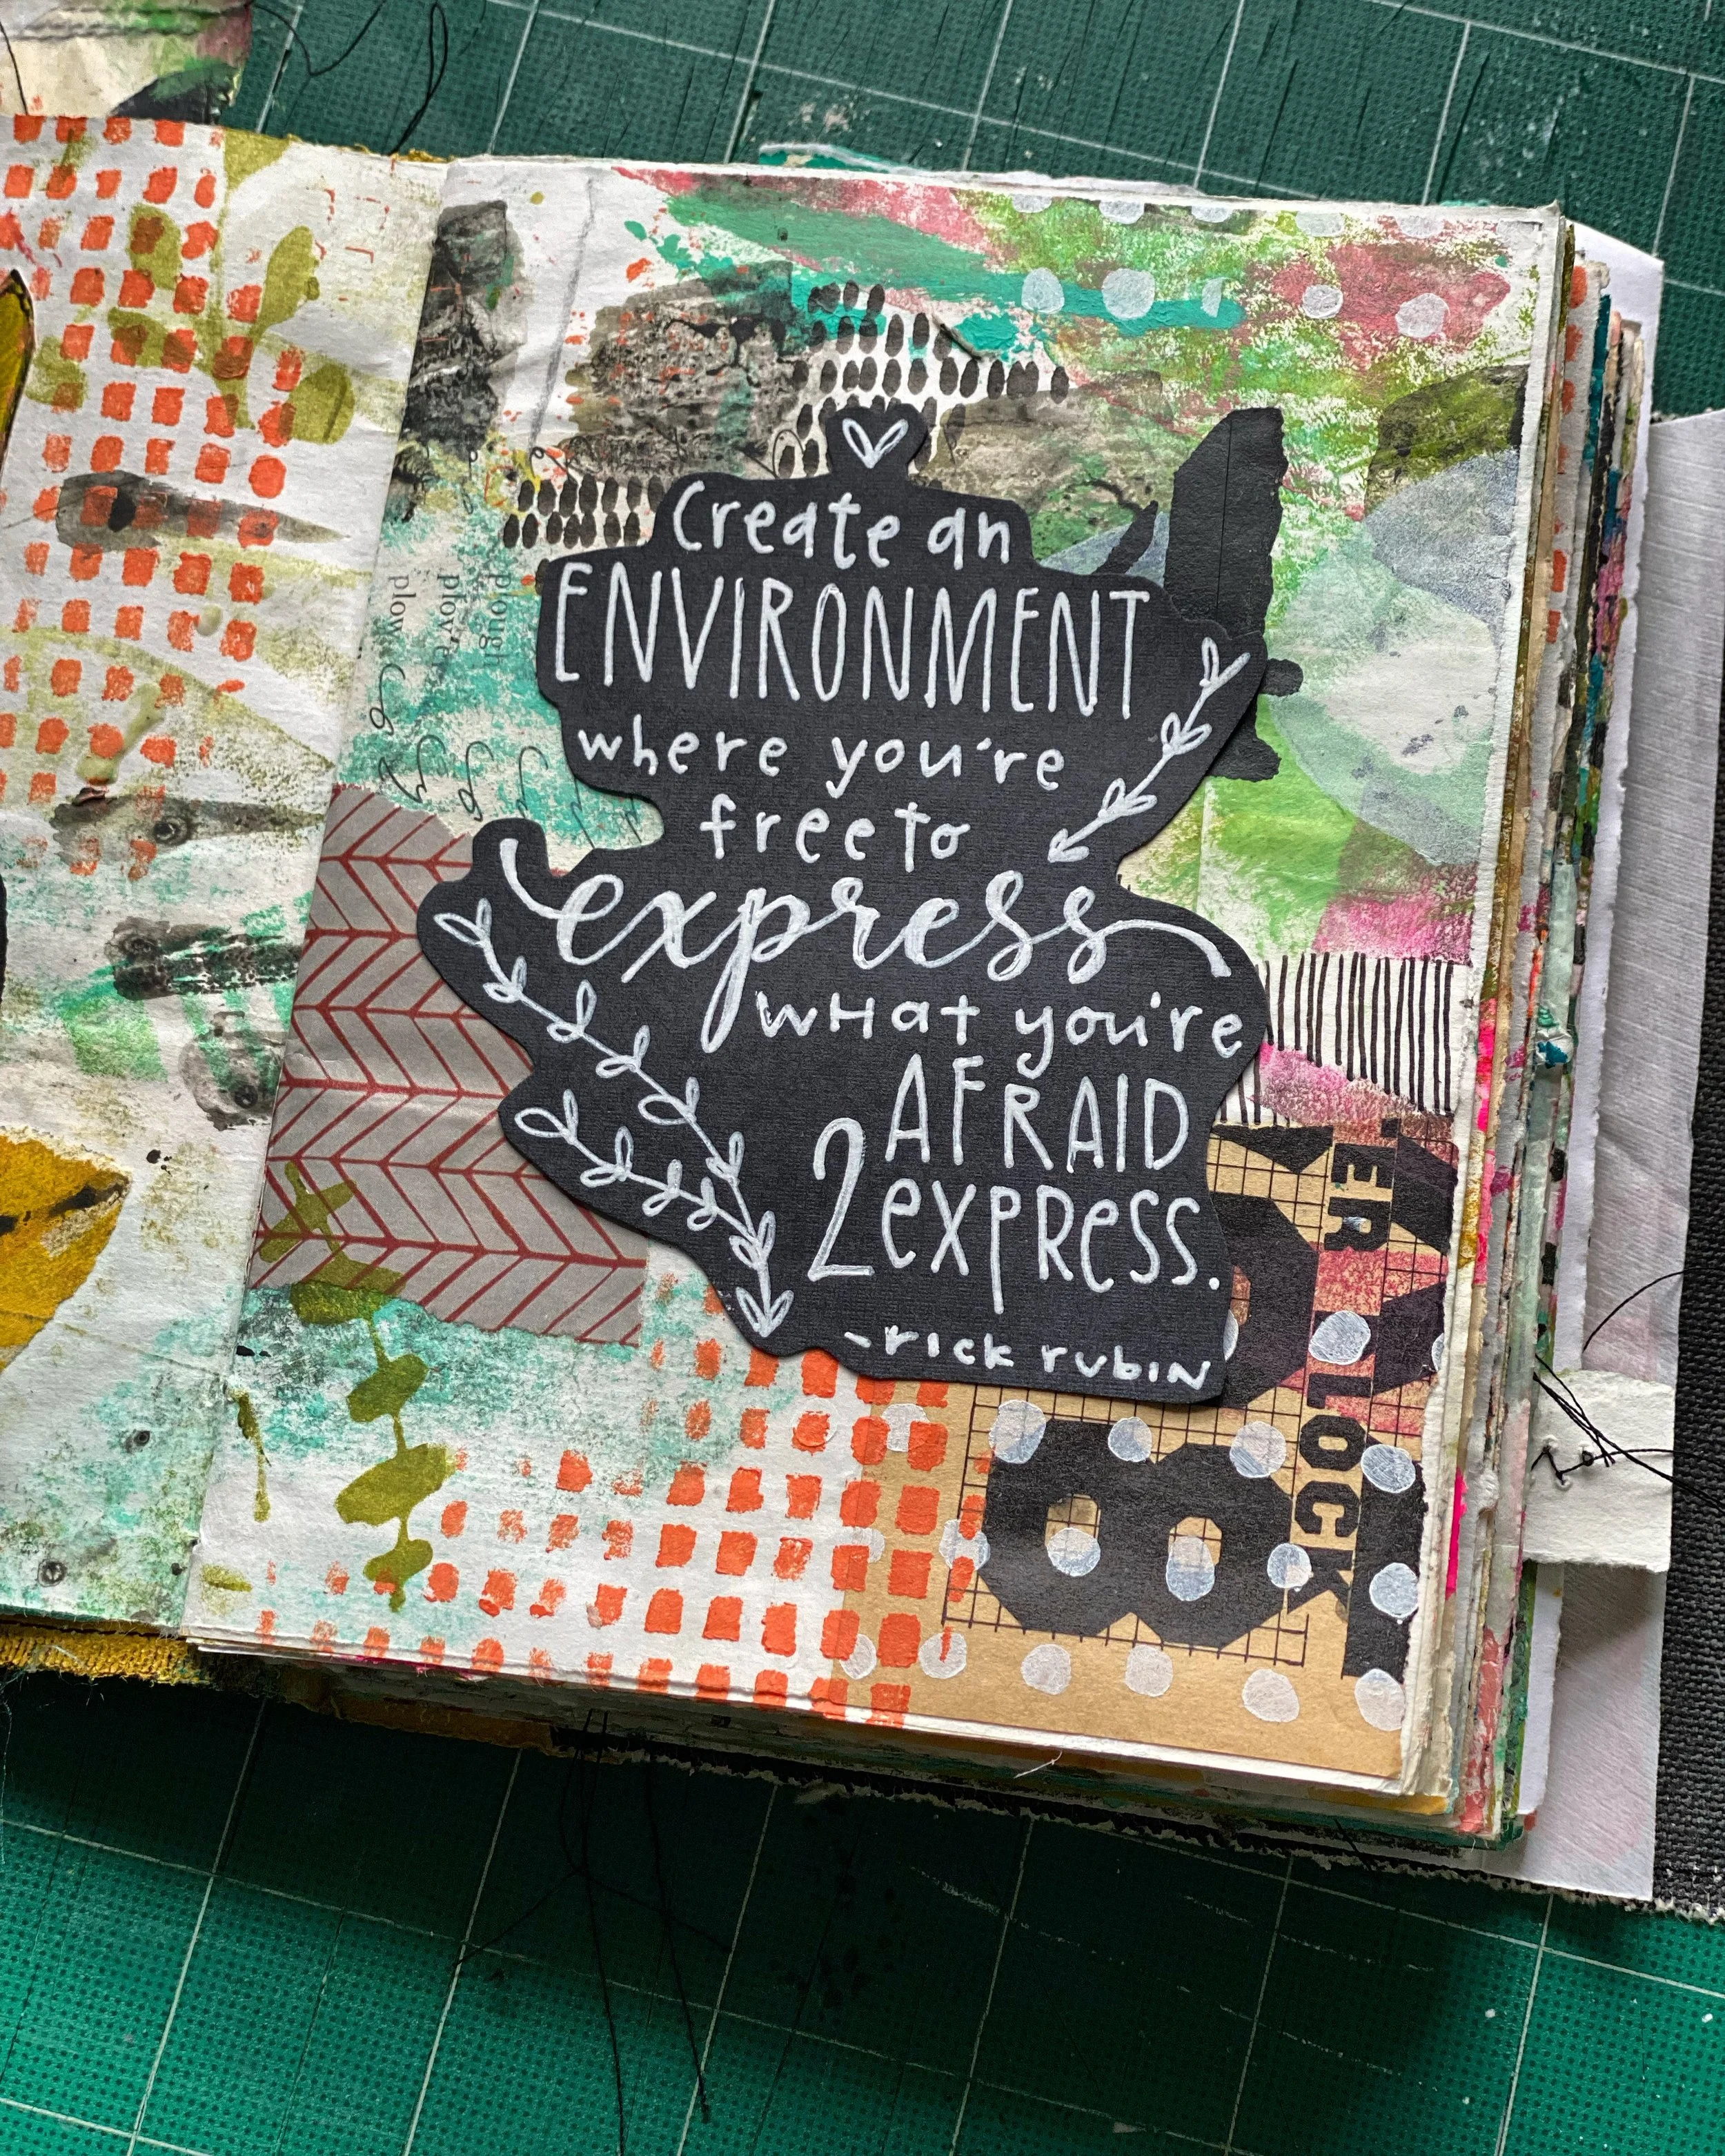 Create an
ENVIRONMENT
where you're
free to
express
what you're
AFRAID
2 express.
-rick rubin
plough
plow
ER
LOCK
8